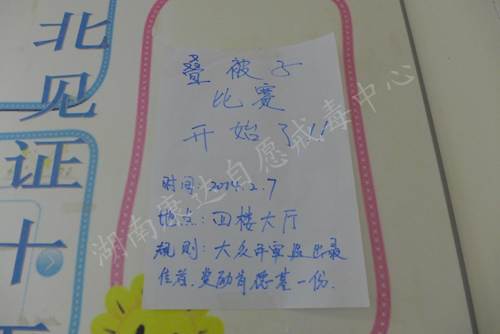 叠被子
比赛
开始了!!
时间:2014.2.7
地点:四楼大厅
规则:大众评审选出最
佳者.奖励肯德基一份.
北见证十
湖南康达自愿戒毒中心